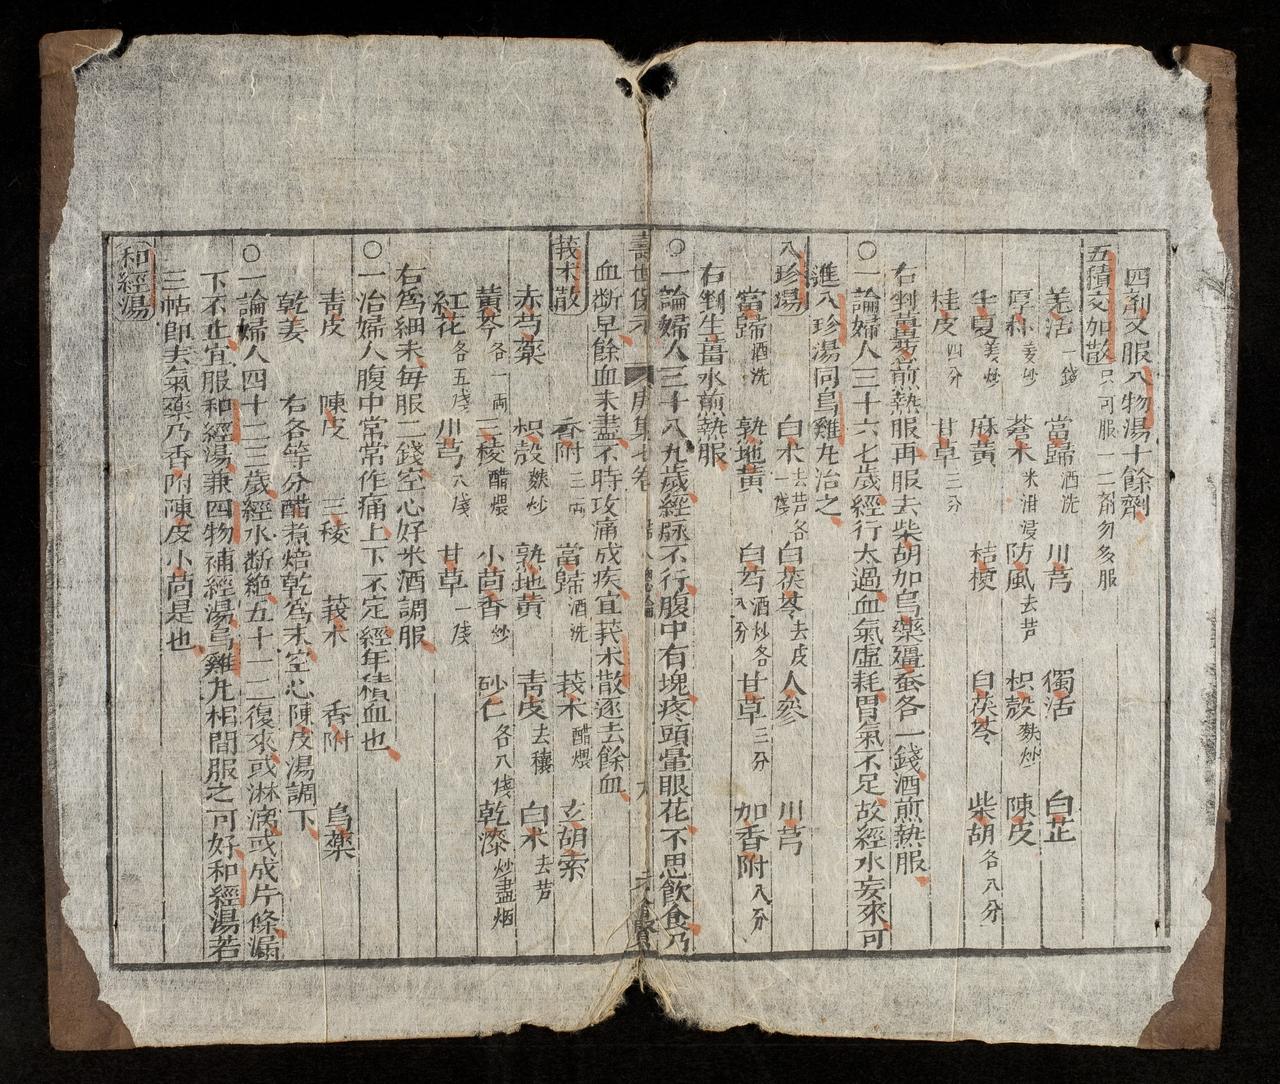 四劑又服八物湯十餘劑
五積交加散只可服一二劑勿多服
羌活一錢 當歸酒洗 川芎 獨活 白芷
厚朴姜炒 蒼木米泔浸 防風去芦 枳殼麩炒 陳皮
半夏姜炒 麻黃 桔梗 白茯苓 柴胡各八分
桂皮四分 甘草三分
右剉薑葱煎熱服再服去柴胡加烏藥殭蚕各一錢酒煎熱服
○一論婦人三十六七歲經行太過血氣虛耗胃氣不足故經水妄來可
進八珍湯同烏雞丸治之
八珍湯 白术去芦各一戔 白茯苓去皮 人參 川芎
當歸酒洗 熟地黃 白芍酒炒各八分 甘草三分 加香附八分
右剉生薑水煎熱服
○一論婦人三十八九歲經脉不行腹中有塊疼頭暈眼花不思飲食乃
壽世保元 庚集七卷 六
血斷早餘血未盡不時攻痛成疾宜莪术散逐去餘血
莪术散 香附三両 當歸酒洗 莪术醋煨 玄胡索
赤芍藥 枳殼麩炒 熟地黃 青皮去穰 白术去芦
黃芩各一両 三稜醋煨 小茴香炒 砂仁各八戔 乾漆炒盡烟
紅花各五戔 川芎八戔 甘草一戔
右爲細末每服二錢空心好米酒調服
○一治婦人腹中常常作痛上下不定經年積血也
青皮 陳皮 三稜 莪术 香附 烏藥
乾姜 右各等分醋煮焙乾爲末空心陳皮湯調下
○一論婦人四十二三歲經水斷絕五十一二復來或淋漓或成片條漏
下不止宜服和經湯兼四物補經湯烏雞丸相間服之可好和經湯若
三帖卽去氣藥乃香附陳皮小茴是也
和經湯